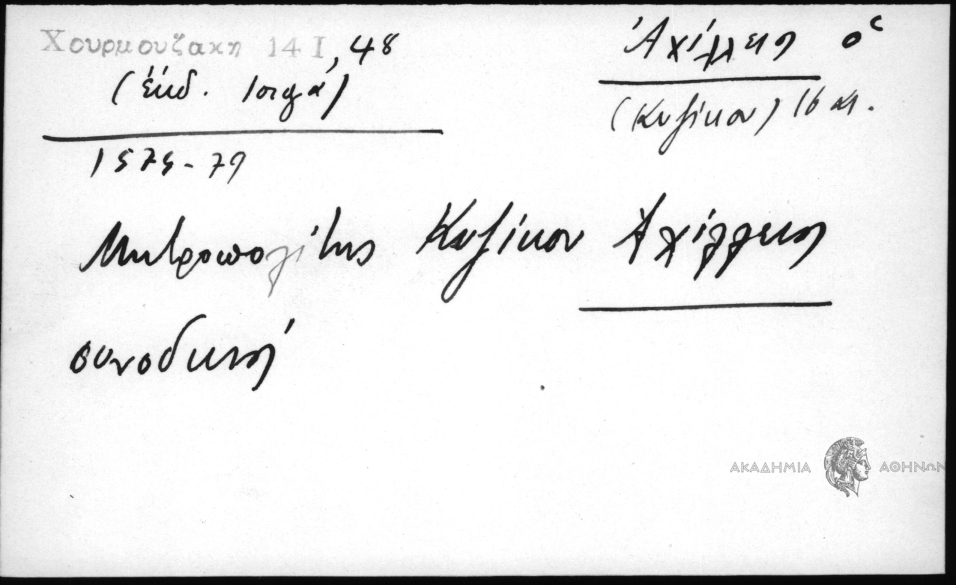 Χουρμουζακη 14 I, 48
(ἐκδ. Ἰοργά)
1575-79
Ἀχίλλειος ὁ
(Κυζίκου) 16 αι.
Μητροπολίτης Κυζίκου Ἀχίλλειος
συνοδική
ΑΚΑΔΗΜΙΑ ΑΘΗΝΩΝ